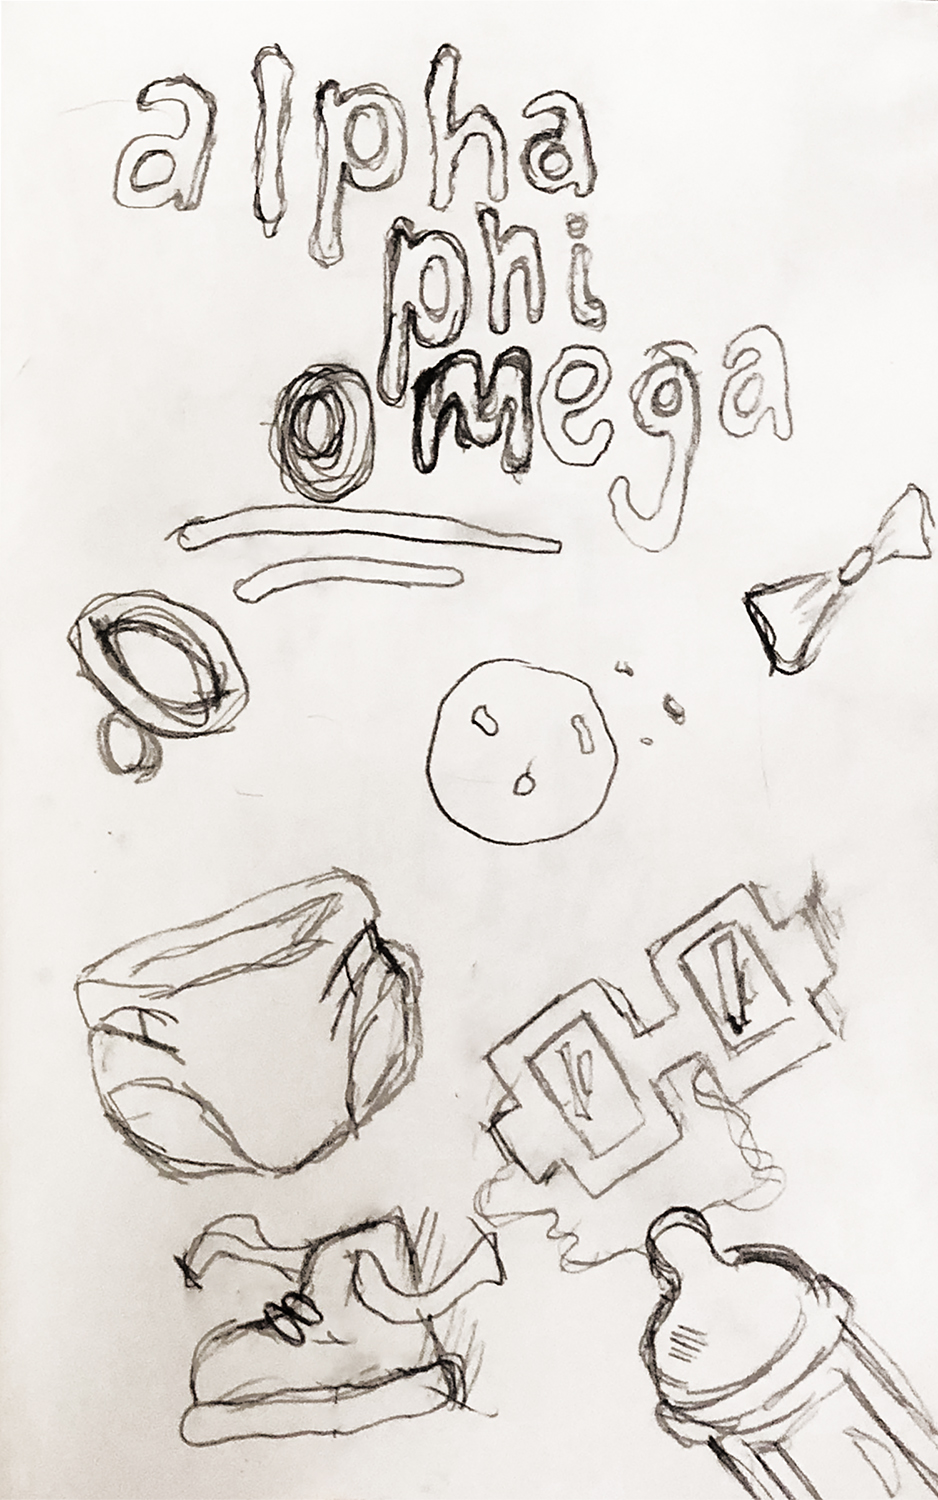 alpha
phi
omega